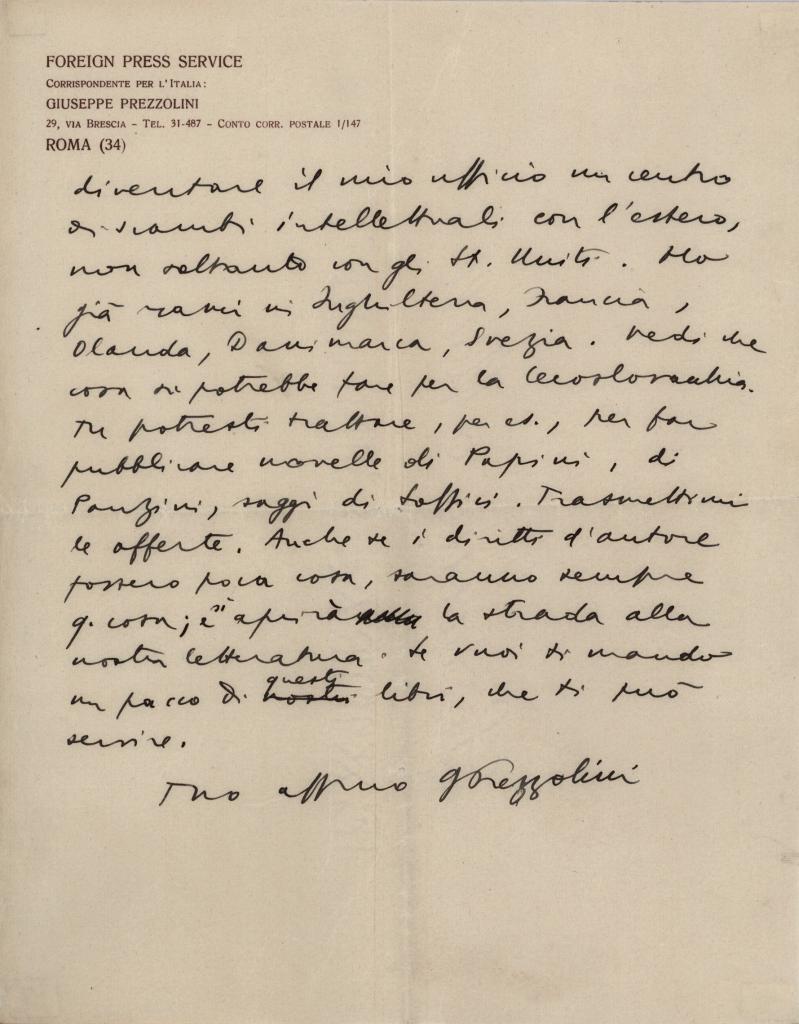 FOREIGN PRESS SERVICE
CORRISPONDENTE PER L'ITALIA:
GIUSEPPE PREZZOLINI
29, VIA BRESCIA - TEL. 31-487 - CONTO CORR. POSTALE 1/147
ROMA (34)
diventare il mio ufficio un centro
di scambi intellettuali con l'estero,
non soltanto con gli St. Uniti. Ho
già rami in Inghilterra, Francia,
Olanda, Danimarca, Svezia. Vedi che
cosa si potrebbe fare per la Cecoslovacchia.
Tu potresti trattare, per es., per far
pubblicare novelle di Papini, di
Panzini, saggi di Soffici. Trasmettimi
le offerte. Anche se i diritti d'autore
fossero poca cosa, saranno sempre
q. cosa; e si aprirà la strada alla
nostra letteratura. Se vuoi ti mando
un pacco di questi libri, che ti può
servire.
Tuo affmo GPrezzolini